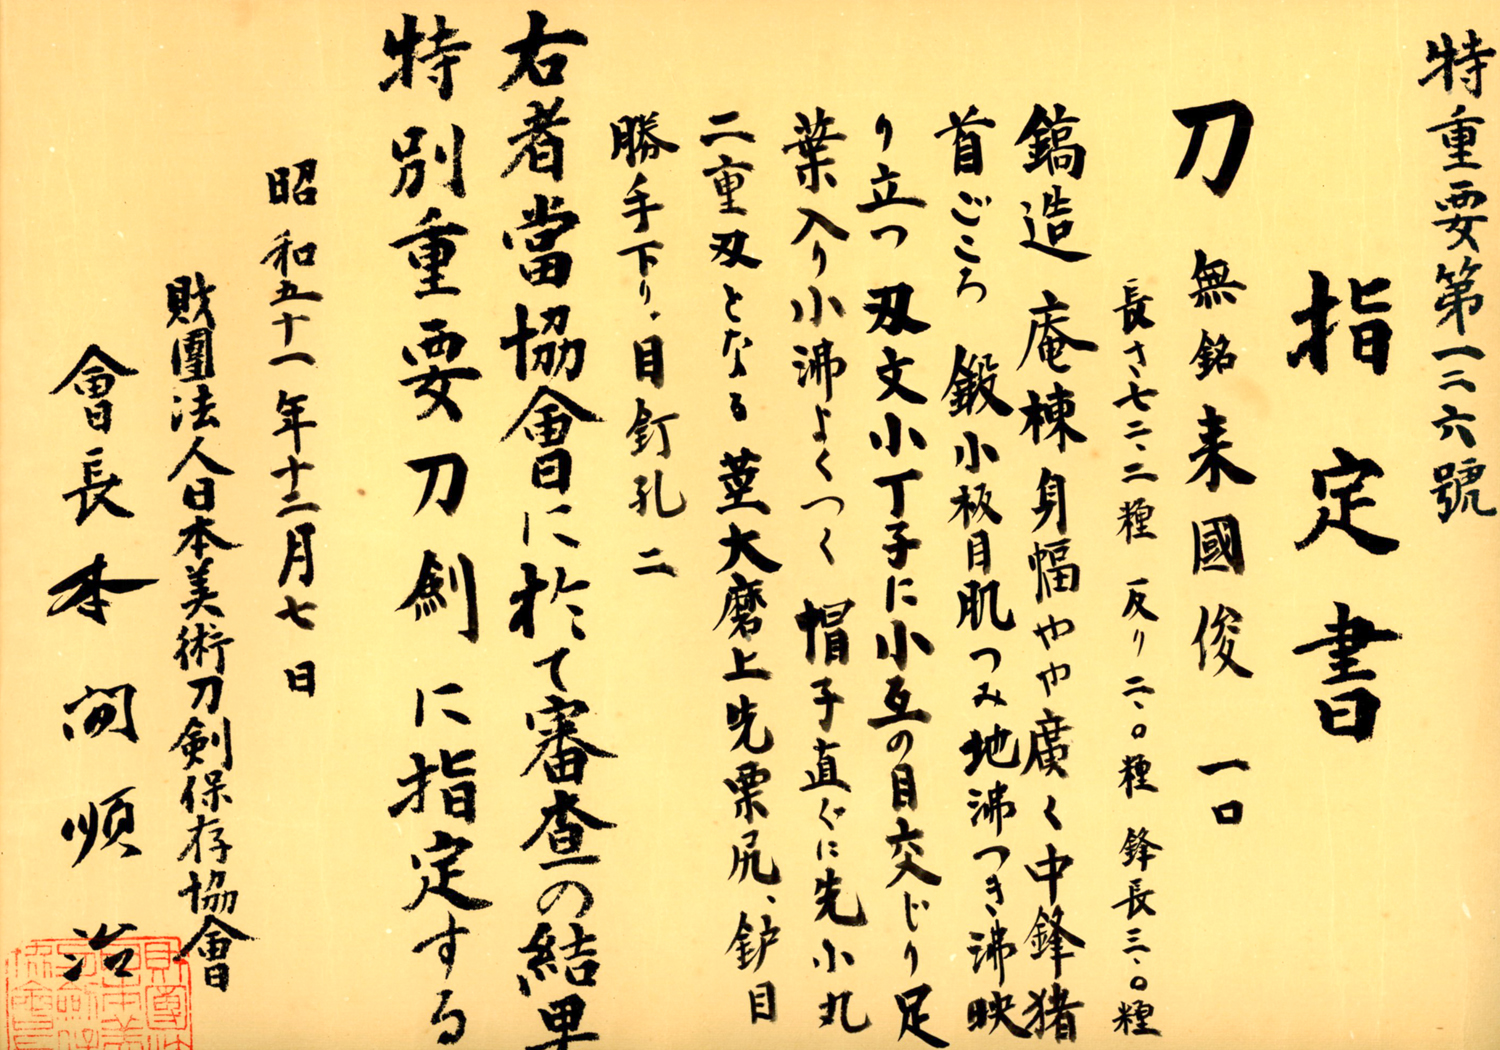 特重要第一二六號
指定書
刀 無銘 来國俊 一口
長さ七二・二糎 反り二・〇糎 鋒長三・〇糎
鎬造 庵棟 身幅やや廣く中鋒猪
首ごころ 鍛小板目肌つみ地沸つき沸映
り立つ 刃文小丁子に小互の目交じり足
葉入り小沸よくつく 帽子直ぐに先小丸
二重刃となる 茎大磨上先栗尻、鈩目
勝手下り、目釘孔二
右者當協會に於て審査の結果
特別重要刀剣に指定する
昭和五十一年十二月七日
財團法人日本美術刀剣保存協會
會長本間順治